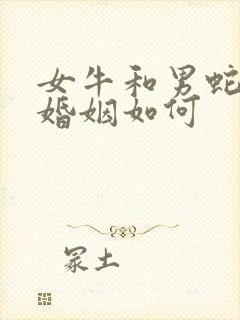 女牛和男蛇
婚姻如何
冢土